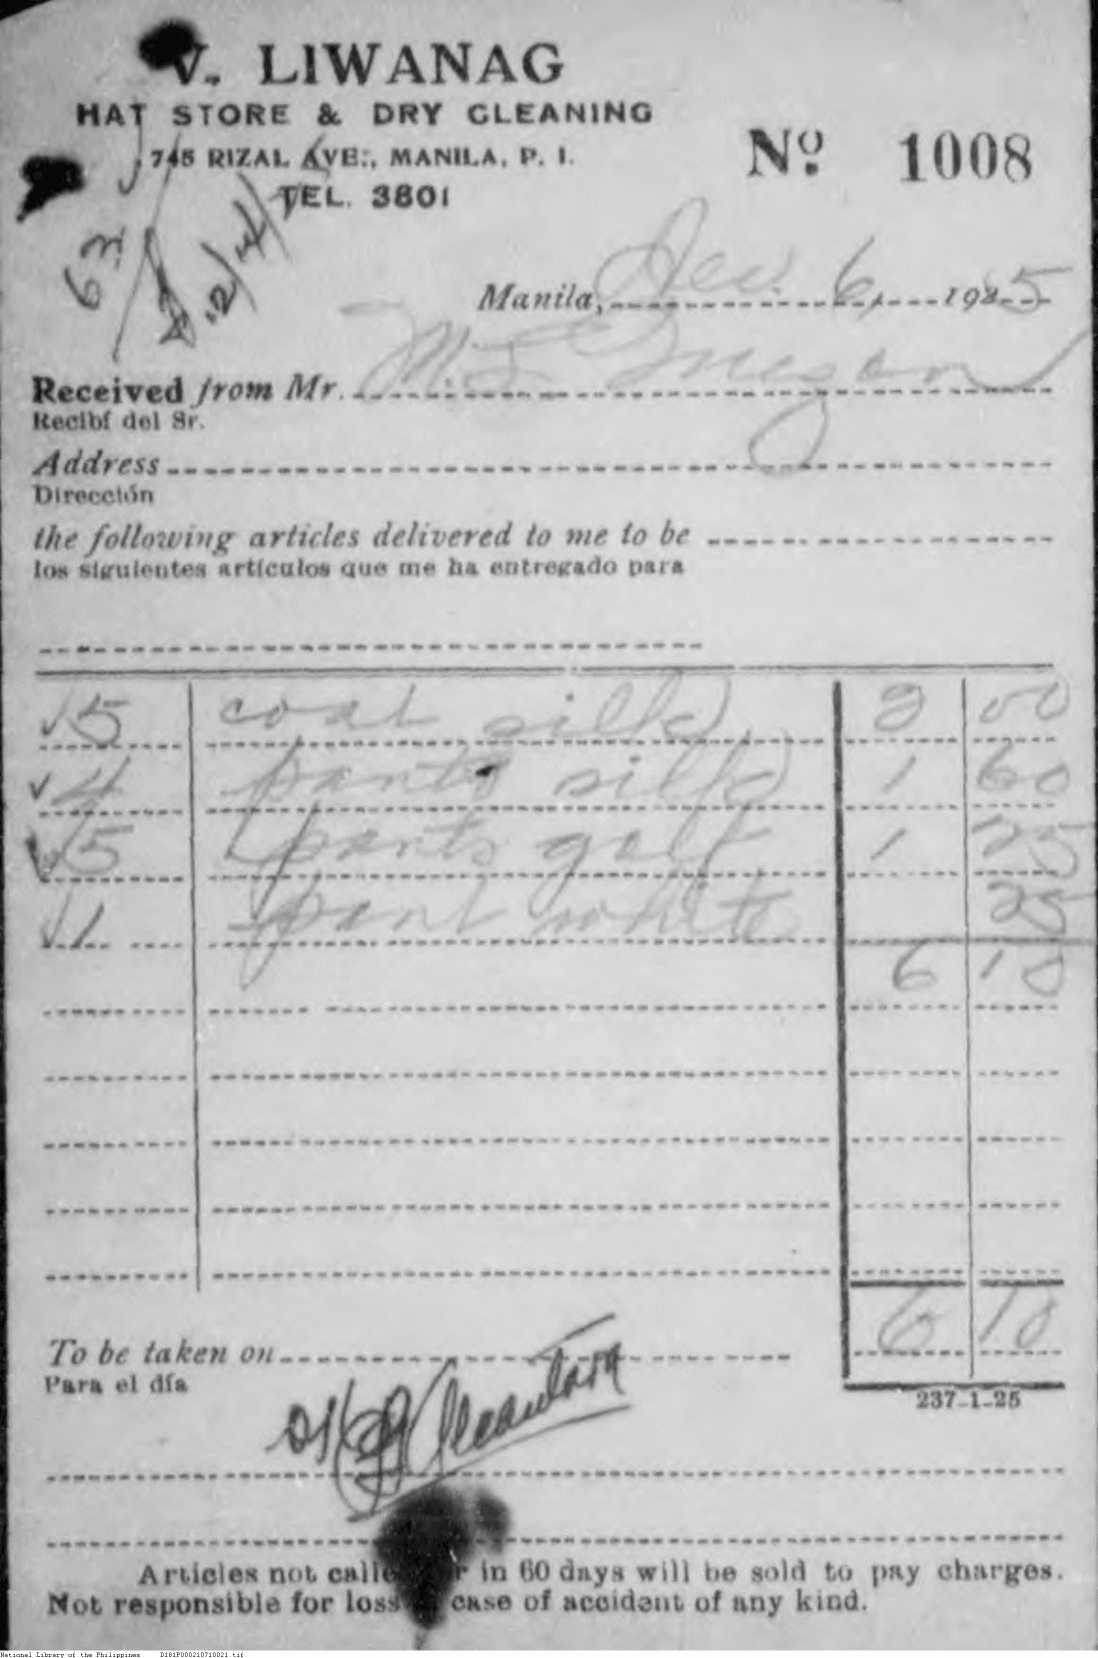 V. LIWANAG
HAT STORE & DRY CLEANING
745 RIZAL AVE., MANILA, P. I.
TEL. 3801
Nº 1008
Manila, Dec. 6, 1925
Received from Mr. M L
Recibí del Sr.
Address
Dirección
the following articles delivered to me to be
los siguientes artículos que me ha entregado para
5 coat silk 2 00
4 pants silk 1 60
5 pants golf 1 25
1 pant white 25
6 10
6 10
To be taken on
Para el día
237-1-25
Articles not call r in 60 days will be sold to pay charges.
Not responsible for loss case of accident of any kind.
National Library of the Philippines D181P000210710021.tif